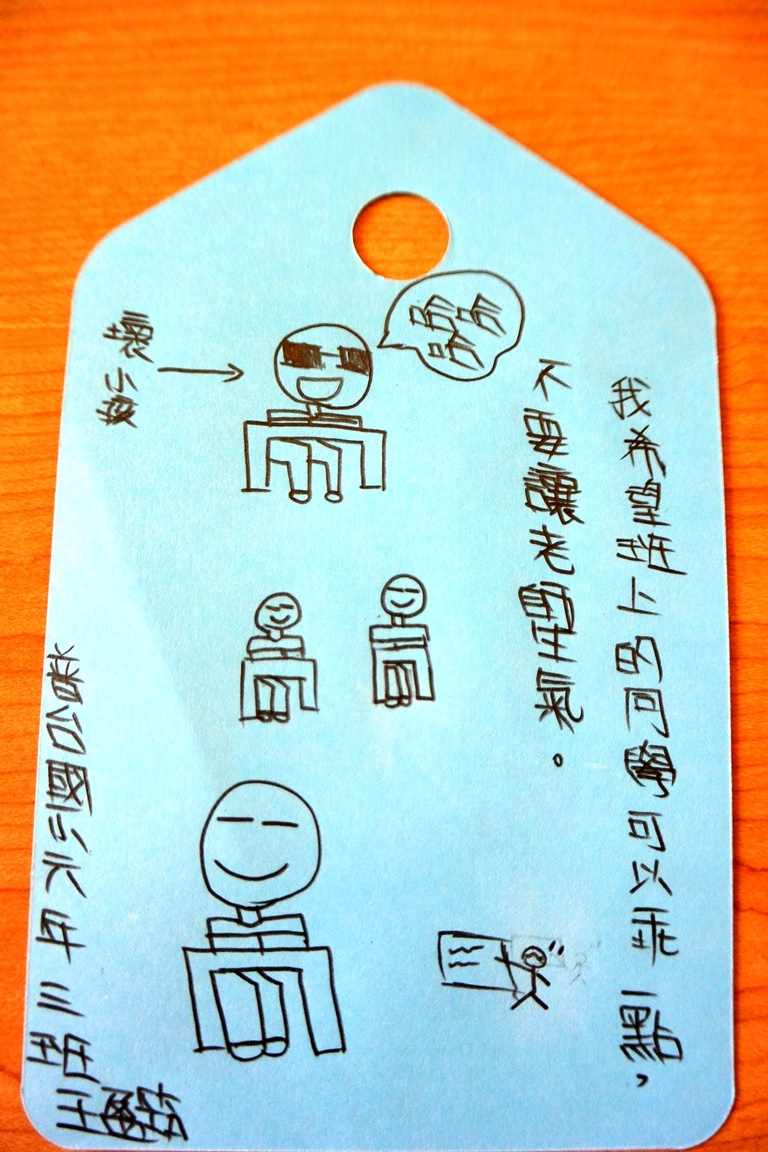 我希望班上的同學可以乖一點，
不要讓老師生氣。
哈哈哈
壞小孩
國小六年三班王